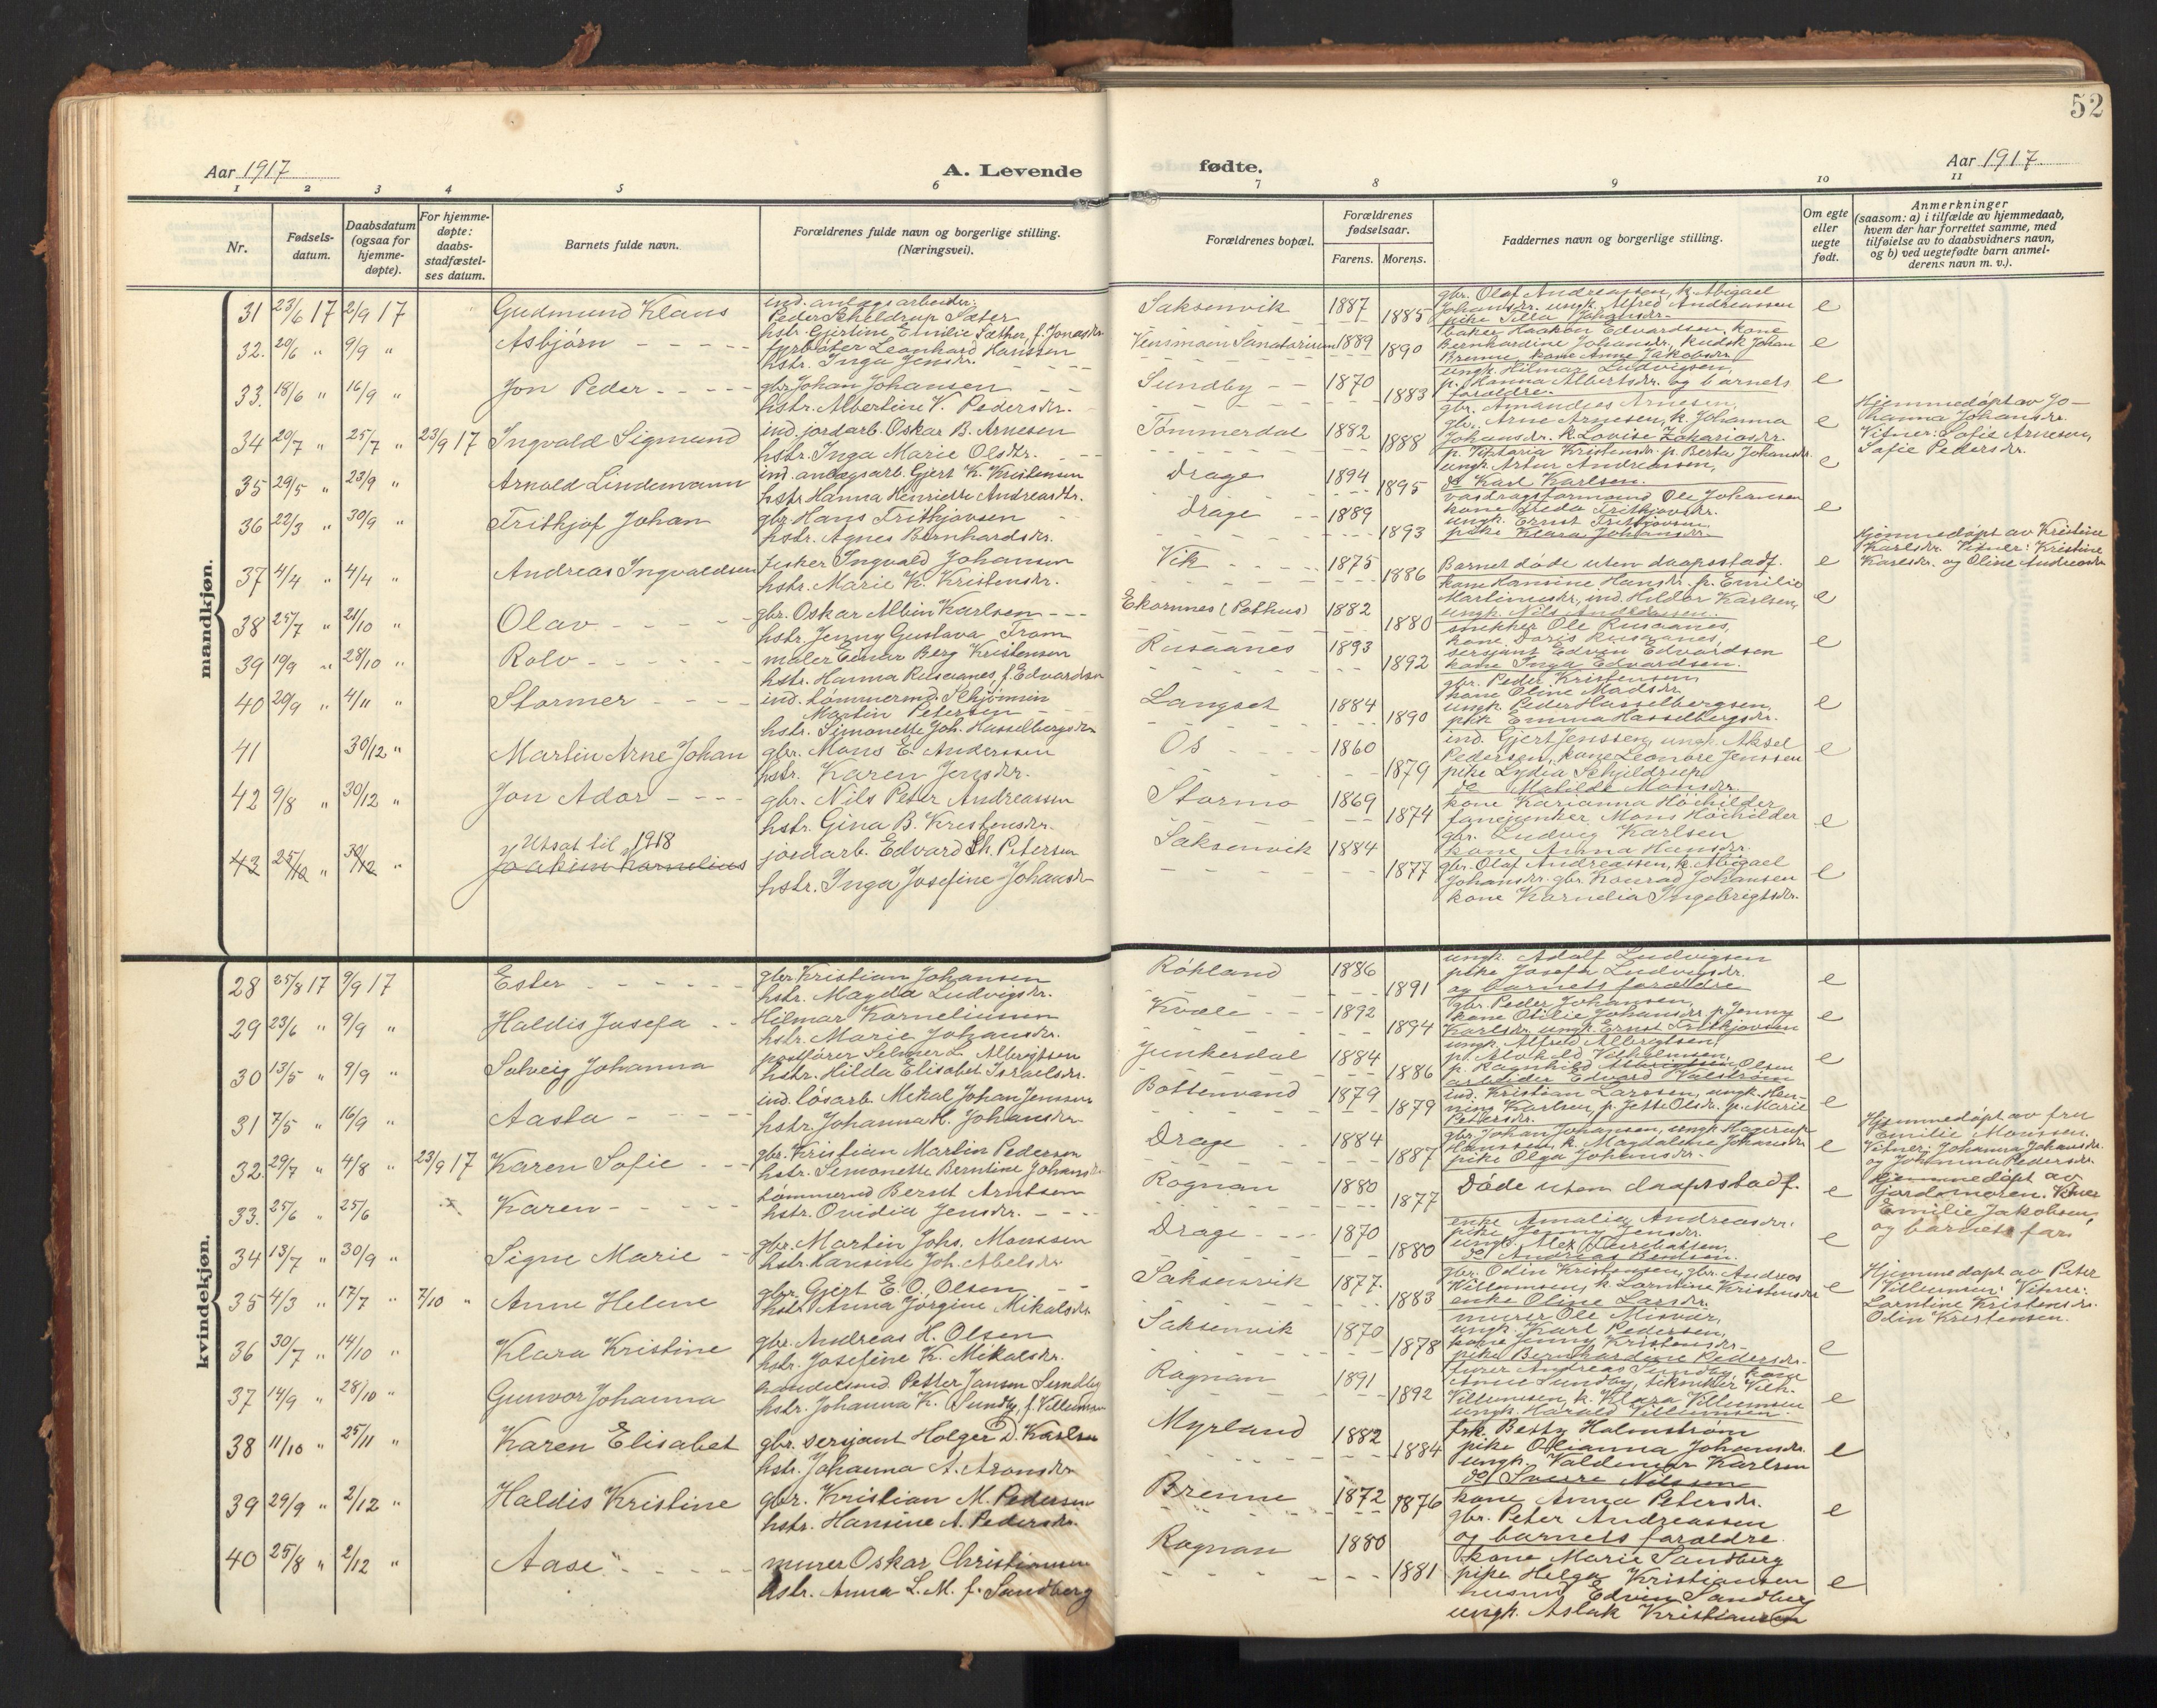 52
Aar 1917
A. Levende
fødte.
Aar 1917
1 2 3 4 5 6 7 8 9 10 11
Nr.
Fødsels-
datum.
Daabsdatum
(ogsaa for
hjemme-
døpte).
For hjemme-
døpte:
daabs-
stadfæstel-
ses datum.
Barnets fulde navn.
Forældrenes fulde navn og borgerlige stilling.
(Næringsvei).
Forældrenes bopæl.
Forældrenes
fødselsaar.
Farens. Morens.
Faddernes navn og borgerlige stilling.
Om egte
eller
uegte
født.
Anmerkninger
(saasom: a) i tilfælde av hjemmedaab,
hvem der har forrettet samme, med
tilføielse av to daabsvidners navn,
og b) ved uegtefødte barn anmel-
derens navn m. v.).
mandkjøn.
31 23/6 17 2/9 17 Gudmund Klaus
ind. anlægsarbeider
Peder Scheldrup Sæter
hstr. Gjertine Emilie Sæther, f. Jonasdr.
Saksenvik 1887 1885
gbr. Olaf Andreassen, k. Abigael
Johansdr. ungk. Alfred Andreassen
pike Silla Johansdr.
e
32. 20/6 " 9/9 " Asbjørn
fyrbøter Leonhard Hanssen
hstr. Inga Jensdr.
Vensmoen Sanatorium 1889 1890
baker Haakon Edvardsen, kone
Bernhardine Johansdr., kudsk Johan
Brenne, kone Anne Jakobsdr.
e
33. 18/6 " 16/9 " Jon Peder
gbr. Johan Johansen
hstr. Albertine V. Pedersdr.
Sundby 1870 1883
ungk. Hilmar Ludvigsen,
p. Hanna Albertsdr. og barnets
forældre.
e
34 20/7 " 25/7 " 23/9 17 Ingvald Sigmund
ind. jordarb. Oskar B. Arnesen
hstr. Inga Marie Olsdr.
Tømmerdal 1882 1888
gbr. Amandus Arnesen,
gbr. Arne Arnesen, k. Johanna
Johansdr. k. Lovise Zakariasdr.
p. Viktoria Kristensdr. p. Berta Johansdr.
e
Hjemmedøpt av Jo-
hanna Johansdr.
Vitner: Sofie Arnesen,
Sofie Pedersdr.
35 29/5 " 23/9 " Arnold Lindemann
ind. anlægsarb. Gjert K. Kristensen
hstr. Hanna Henriette Andreasdtr.
Drage 1894 1895
ungk. Artur Andreassen,
do Karl Karlsen.
e
36 22/3 " 30/9 " Frithjof Johan
gbr. Hans Frithjovsen
hstr. Agnes Bernhardsdr.
Drage 1889 1893
vasdragsformand Ole Johansen
kone Breda Frithjovsdr.
ungk. Ernst Frithjovsen
pike Klara Johansdr.
e
37 4/4 " 4/4 " Andreas Ingvaldsen
fisker Ingvald Johansen
hstr. Marie K. Kristensdr.
Vik 1875 1886
Barnet døde uten daapsstadf.
e
Hjemmedøpt av Kristine
Karlsdr. Vitner: Kristine
Karlsdr. og Oline Andreasdr.
38 25/7 " 21/10 " Olav
gbr. Oskar Albin Karlsen
hstr. Jenny Gustava Fram
Ekornnes (Pothus) 1882 1880
kone Hansine Hansdr. p. Emilie
Martinusdr, ind. Hildor Karlsen,
ungk. Nils Andreassen.
e
39 10/9 " 28/10 " Rolv
maler Einar Berg Kristensen
hstr. Hanna Rusaanes, f. Edvardsen
Rusaanes 1893 1892
snekker Ole Rusaanes,
kone Doris Rusaanes,
sersjant Edvin Edvardsen
kone Inga Edvardsen.
e
40 20/9 " 4/11 " Stormer
ind. tømmermd.
Martin Petersen
hstr. Simonette Joh. Hasselbergsdr.
Langset 1884 1890
gbr. Peder Kristensen
kone Oline Madsdr.
ungk. Peder Hasselbergsen,
pike Emma Hasselbergsdr.
e
41 30/12 " Martin Arne Johan
gbr. Mons E. Anderssen
hstr. Karen Jensdr.
Os 1860 1879
ind. Gjert Jenssen, ungk. Aksel
Pedersen, kone Leonore Jenssen
pike Lydia Schjeldrup
do Matilde Monsdr.
e
42 9/8 " 30/12 " Jon Ador
gbr. Nils Peter Andreassen
hstr. Gina B. Kristensdr.
Stormo 1869 1874
kone Karianna Høchilder
fanejunker Mons Høchilder
gbr. Ludvig Karlsen
kone Anna Hansdr.
e
Utsat til 1918
43 25/10 " 30/12 " Joakim Kornelius
jordarb. Edvard Sh. Petersen
hstr. Inga Josefine Johansdr.
Saksenvik 1884 1877
gbr. Olaf Andreassen, k. Abigael
Johansdr. gbr. Konrad Johansen
kone Karnelia Ingebrigtsdr.
e
kvindekjøn.
28 25/8 17 9/9 17 Ester
gbr. Kristian Johansen
hstr. Magda Ludvigsdr.
Røkland 1886 1891
ungk. Adolf Ludvigsen
pike Josefa Ludvigsdr.
og barnets forældre
e
29 23/6 " 9/9 " Haldis Josefa
Hilmar Korneliussen
hstr. Marie Johansdr.
Kvæle 1892 1894
gbr. Peder Johansen,
kone Otilie Johansdr. p. Jenny
Karlsdr. ungk. Ernst Frithjovsen
e
30 13/5 " 9/9 " Solveig Johanna
postfører Selmer L. Albrigtsen
hstr. Hilda Elisabet Israelsdr.
Junkerdal 1884 1886
ungk. Alfred Albrigtsen,
p. Alvhild Vilhelmsen,
p. Ragnhild Olsen
arbeider Edvard Valstrøm
e
31 7/5 " 16/9 " Aasta
ind. løsarb. Mikal Johan Jenssen
hstr. Johanna K. Johansdr.
Bottenvand 1879 1879
ind. Kristian Larssen, ungk. Hen-
ning Karlsen, p. Jette Olsdr. p. Marie
Pedersdr.
e
32. 29/7 " 4/8 " 23/9 17 Karen Sofie
gbr. Kristian Martin Pedersen
hstr. Simonette Berntine Johansdr.
Drage 1884 1887
gbr. Johan Johansen, ungk. Hagerup
Hanssen, k. Magdalene Johansdr.
pike Olga Johansdr.
e
Hjemmedøpt av fru
Emilie Monssen.
Vitner: Johanna Johansdr.
og Johanna Pedersdr.
33. 25/6 " 25/6 Karen
tømmermd Bernt Arntsen
hstr. Ovidia Jensdr.
Rognan 1880 1877
Døde uten daapsstadf.
e
Hjemmedøpt av
jordmoren. Vitner
Emilie Jakobsen,
og barnets far
34 13/7 " 30/9 " Signe Marie
gbr. Martin Johs. Monssen
hstr. Hansine Joh. Abelsdr.
Drage 1870 1880
enke Amalia Andreasdr.
pike Jensdr.
do Andreas Bentsen.
e
35 4/3 " 17/7 " 7/10 " Anne Helene
gbr. Gjert E. O. Olsen
hstr. Anna Jørgine Mikalsdr.
Saksenvik 1877 1883
gbr. Odin Kristensen, gbr. Andreas
Villumsen, k. Larntine Kristensdr
enke Oline Larsdr.
e
Hjemmedøpt av Peter
Villumsen. Vitner:
Larntine Kristensdr.
Odin Kristensen.
36 30/7 " 14/10 " Klara Kristine
gbr. Andreas H. Olsen
hstr. Josefine K. Mikalsdr.
Saksenvik 1870 1878
murer Ole Misvær,
ungk. Karl Pedersen,
kone Jenny Kristensdr.
pike Bernhardine Pedersdr.
e
37 14/9 " 28/10 " Gunvor Johanna
handelsmd. Petter Janson Sundby
hstr. Johanna K. Sundby, f. Villumsen
Rognan 1891 1892
Andreas Sundby, kone
Anne Sundby, tekniker Vilh.
Villumsen, k. Klara Villumsen
ungk. Harald Villumsen.
e
38 11/10 " 25/11 " Karen Elisabet
gbr. sersjant Holger D. Karlsen
hstr. Johanna A. Aronsdr
Myrland 1882 1884
frk. Betty Holmstrøm
pike Olianna Johansdr.
ungk. Valdemar Karlsen
do Sverre Nilssen
e
39 29/9 " 2/12 " Haldis Kristine
gbr. Kristian M. Pedersen
hstr. Hansine A. Pedersdr.
Brenne 1872 1876
kone Anna Petersdr.
gbr. Peter Andreassen
og barnets forældre.
e
40 25/8 " 2/12 " Aase
murer Oskar Christiansen
hstr. Anna L. M. f. Sandberg
Rognan 1880 1881
kone Marie Sandberg
pike Helga Kristiansen
husmd Edvin Sandberg
ungk. Aslak Kristiansen
e